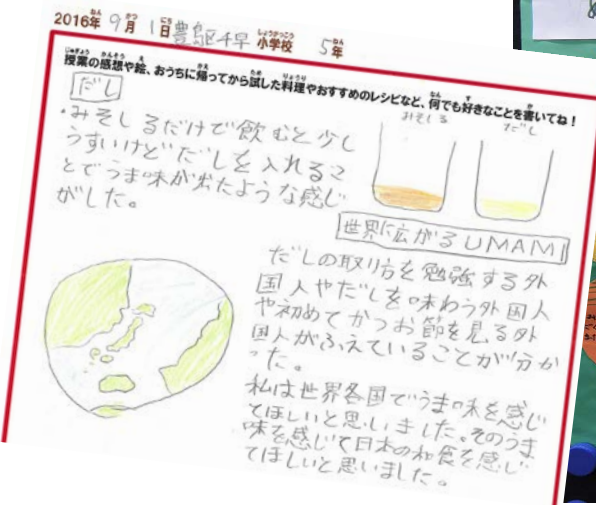 2016年 9月 1日 豊島区千早 小学校 5年
授業の感想や絵、おうちに帰ってから試した料理やおすすめのレシピなど、何でも好きなことを書いてね！
だし
・みそしるだけで飲むと少し
うすいけどだしを入れるこ
とでうま味が出たような感じ
がした。
みそしる だし
世界に広がるUMAMI
だしの取り方を勉強する外
国人やだしを味わう外国人
や初めてかつお節を見る外
国人がふえていることが分か
った。
私は世界各国でうま味を感じ
てほしいと思いました。そのうま
味を感じて日本の和食を感じ
てほしいと思いました。